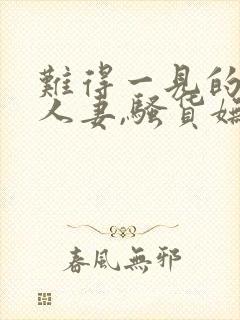 難得一見的
人妻,騷貨媽
春風無邪